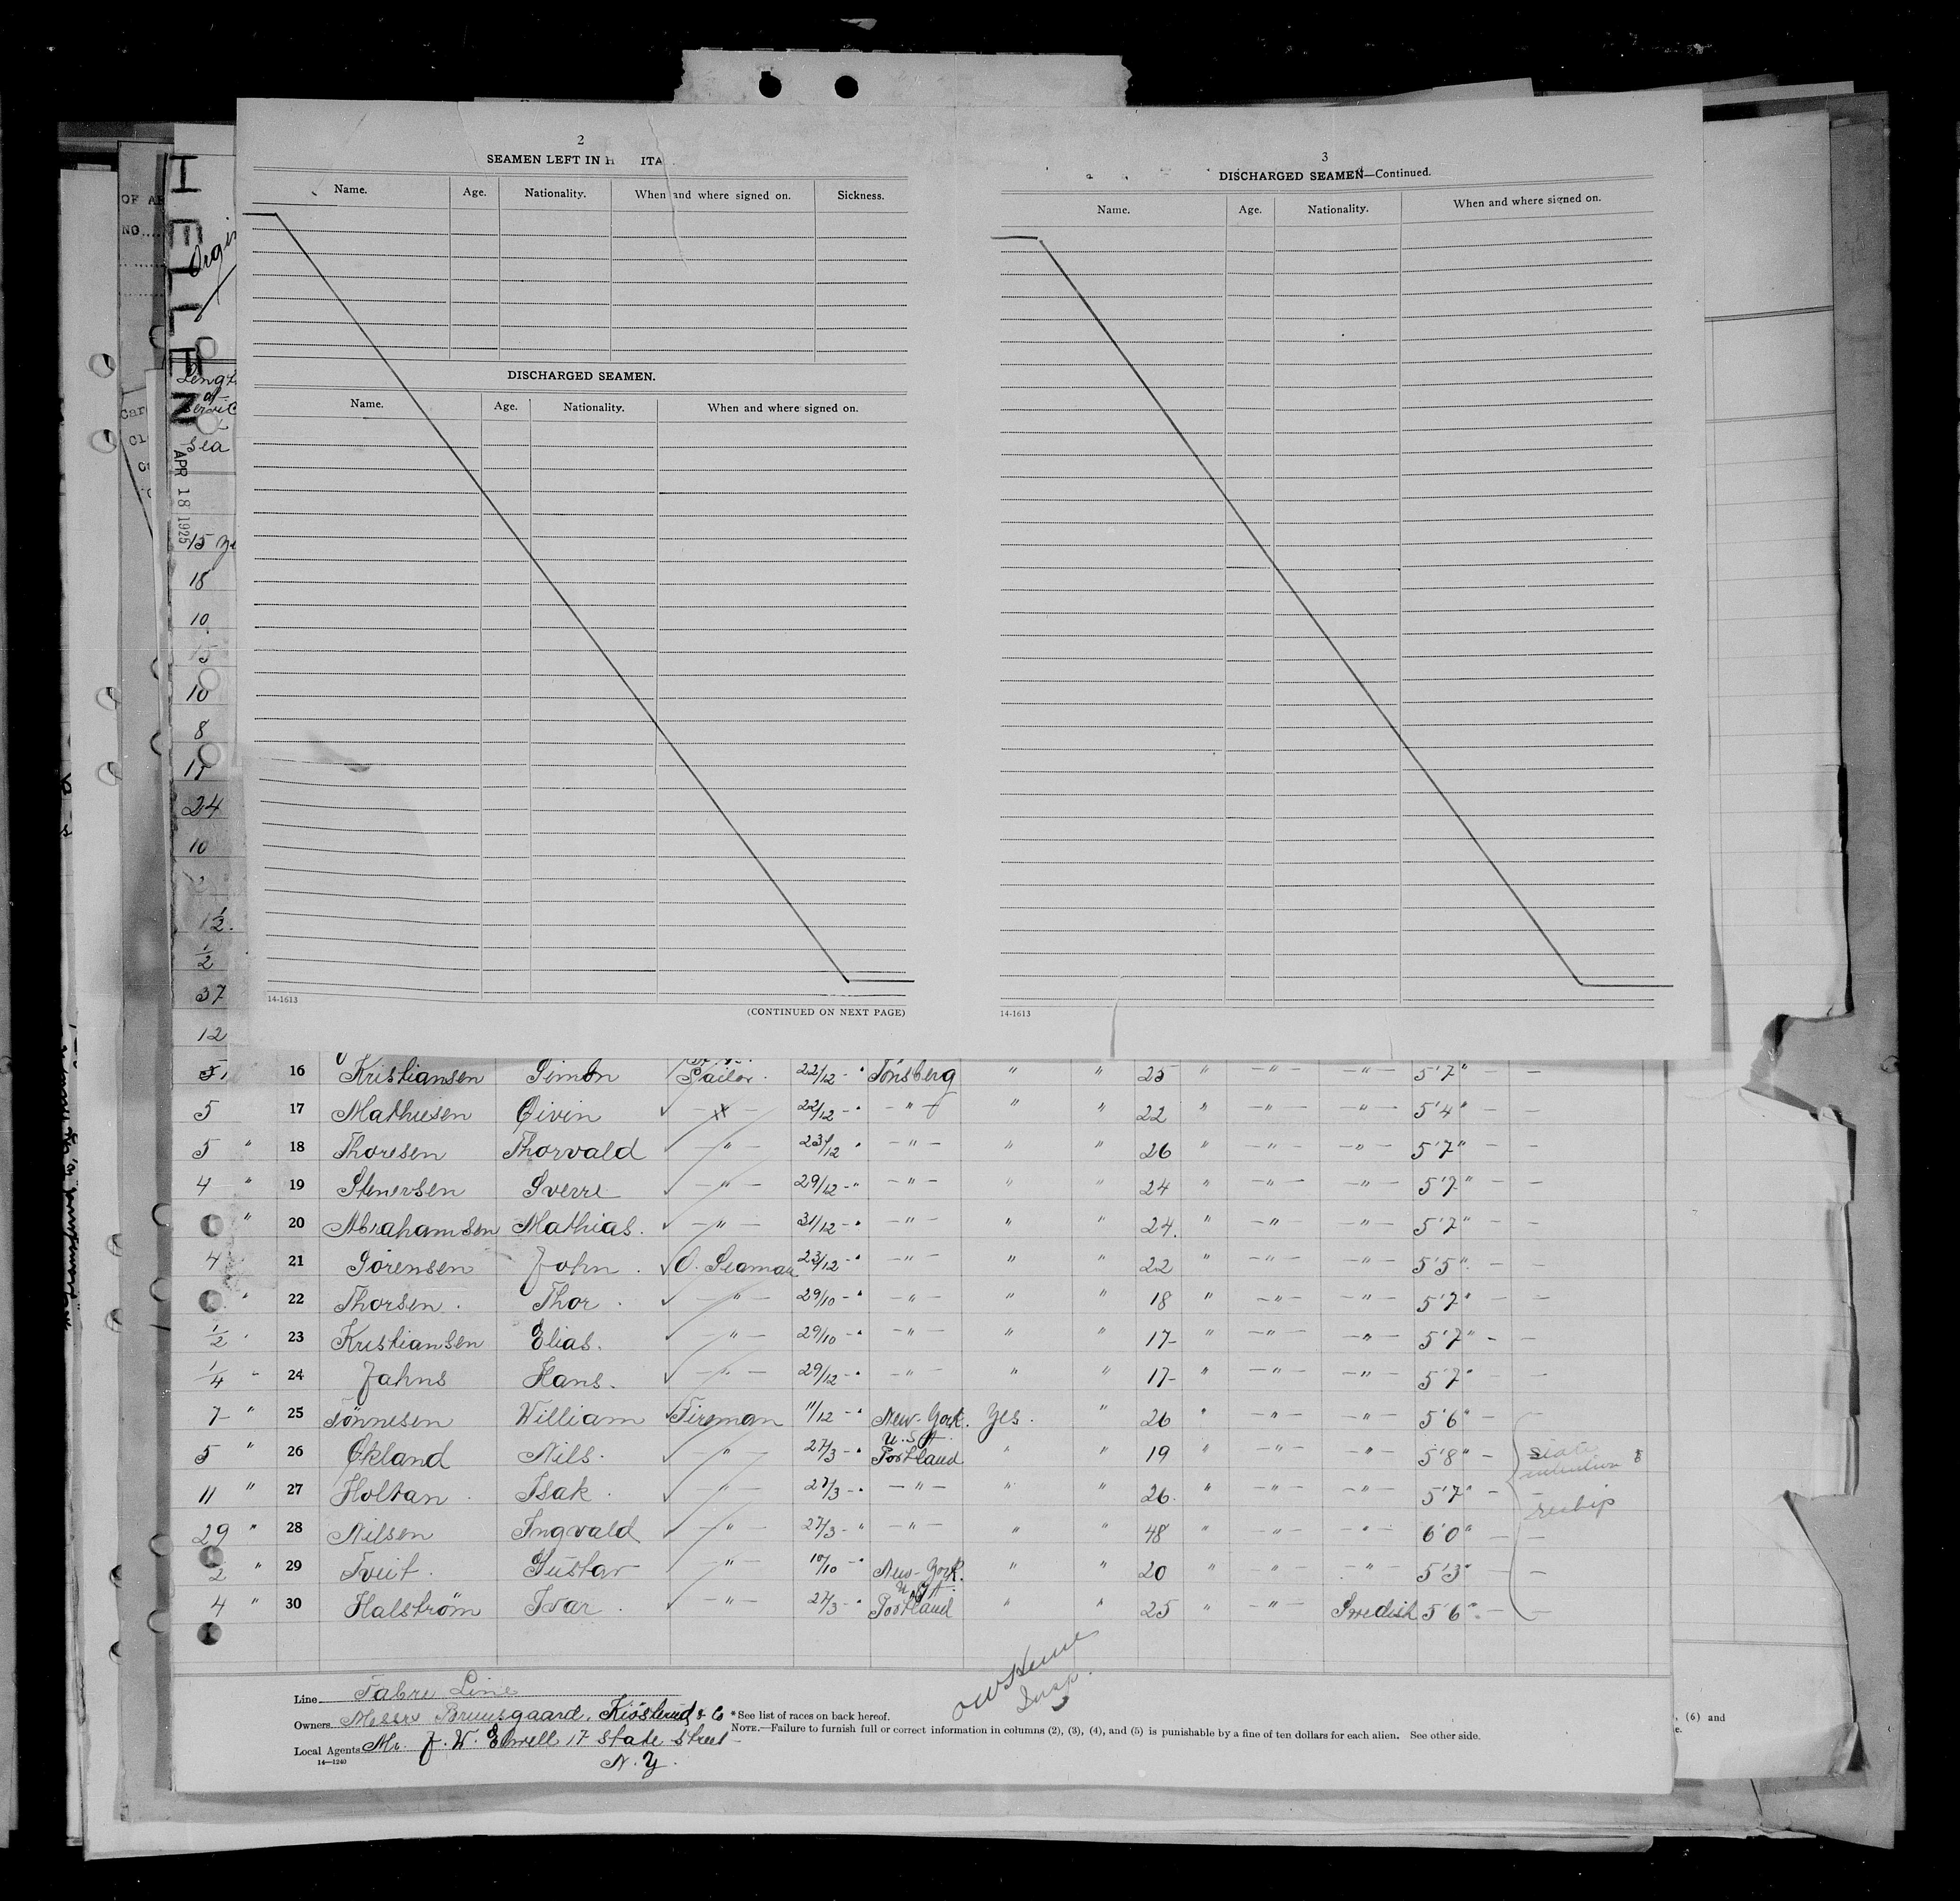 2
SEAMEN LEFT IN H ITA
Name. Age. Nationality. When and where signed on. Sickness.
DISCHARGED SEAMEN.
Name. Age. Nationality. When and where signed on.
14-1613
(CONTINUED ON NEXT PAGE)
3
DISCHARGED SEAMEN—Continued.
Name. Age. Nationality. When and where signed on.
14-1613
OF AR
NO.
HELLEN
Origi
Lengt
of
Servic
Sea
APR 18 1925
15 ye
18
10
15
10
8
17
24
10
2
1½
½
37
12
5 16 Kristiansen Simon Sailor. 22/12 -" Tönsberg " " 25 " -"- -"- 5'7" - -
5 17 Mathiesen Eivin ✓ -"- 22/12 -" -"- " " 22 " -"- -"- 5'4" - -
5 " 18 Thoresen Thorvald ✓ -"- 23/12 " -"- " " 26 " -"- -"- 5'7" -
4 " 19 Stenersen Sverre ✓ -"- 29/12 -" -"- " " 24 " -"- -"- 5'7" - -
" 20 Abrahamsen Mathias. ✓ -"- 31/12 -" -"- " " 24. " -"- -"- 5'7" - -
4 21 Sörensen John. ✓ O. Seaman 23/12 -" -"- " " 22 " -"- -"- 5'5" - -
" 22 Thorsen. Thor. ✓ -"- 29/10 -" -"- " " 18 " -"- -"- 5'7" - -
½ " 23 Kristiansen Elias. ✓ -"- 29/10 -" -"- " " 17- " -"- -"- 5'7" - -
¼ " 24 Jahns Hans. ✓ -"- 29/12 -" -"- " " 17- " -"- -"- 5'7" - -
7- " 25 Tönnesen William ✓ Fireman 11/12 -" New-York. Yes. " 26 " -"- -"- 5'6" - -
U.S.A.
5 " 26 Økland Nils. ✓ -"- 27/3 -" Portland " " 19 " -"- -"- 5'8" -
11 " 27 Holtan. Isak. ✓ -"- 27/3 -" -"- " " 26. " -"- -"- 5'7" - -
29 " 28 Nilsen Ingvald ✓ -"- 27/3 -" -"- " " 48 " -"- -"- 6'0" - -
2 " 29 Tveit. Gustav ✓ -"- 10/10 -" New-York. " " 20 " -"- -"- 5'3" - -
4 " 30 Halström Ivar. ✓ -"- 27/3 -" Portland " " 25 " -"- Swedish 5'6" - -
Insp.
Line Fabre Line
Owners Messrs Bruusgaard, Kiösterud & Co *See list of races on back hereof.
NOTE.—Failure to furnish full or correct information in columns (2), (3), (4), and (5) is punishable by a fine of ten dollars for each alien. See other side.
Local Agents Mr. J. W. Elwell 17 State Street
N.Y.
14—1240
, (6) and